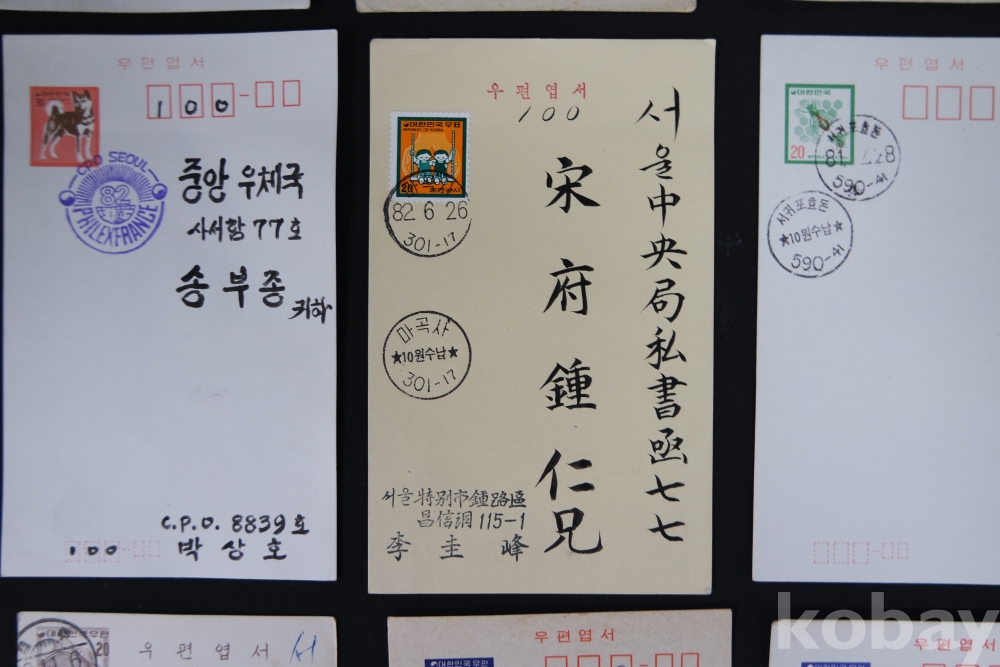 우편엽서
대한민국
100-
CPO SEOUL
82
PHILEXFRANCE
중앙 우체국
사서함 77호
송부종 귀하
C.P.O. 8839호
100
박상호
우편엽서
100
대한민국우표
REPUBLIC OF KOREA
20
82 6 26
301-17
마곡사
★10원수납★
301-17
서울中央局私書函七七
宋府鍾仁兄
서울特別市鍾路區
昌信洞 115-1
李圭峰
우편엽서
대한민국
20
서귀포효돈
81. 28
590-41
서귀포효돈
★10원수납★
590-41
대한민국우표
20
우편엽서
서
우편엽서
대한민국우표
우편엽서
대한민국
kobay